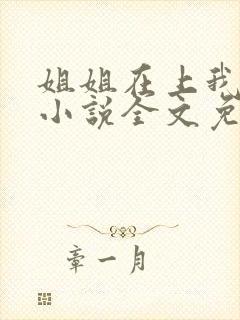 姐姐在上我
小说全文免
章一月